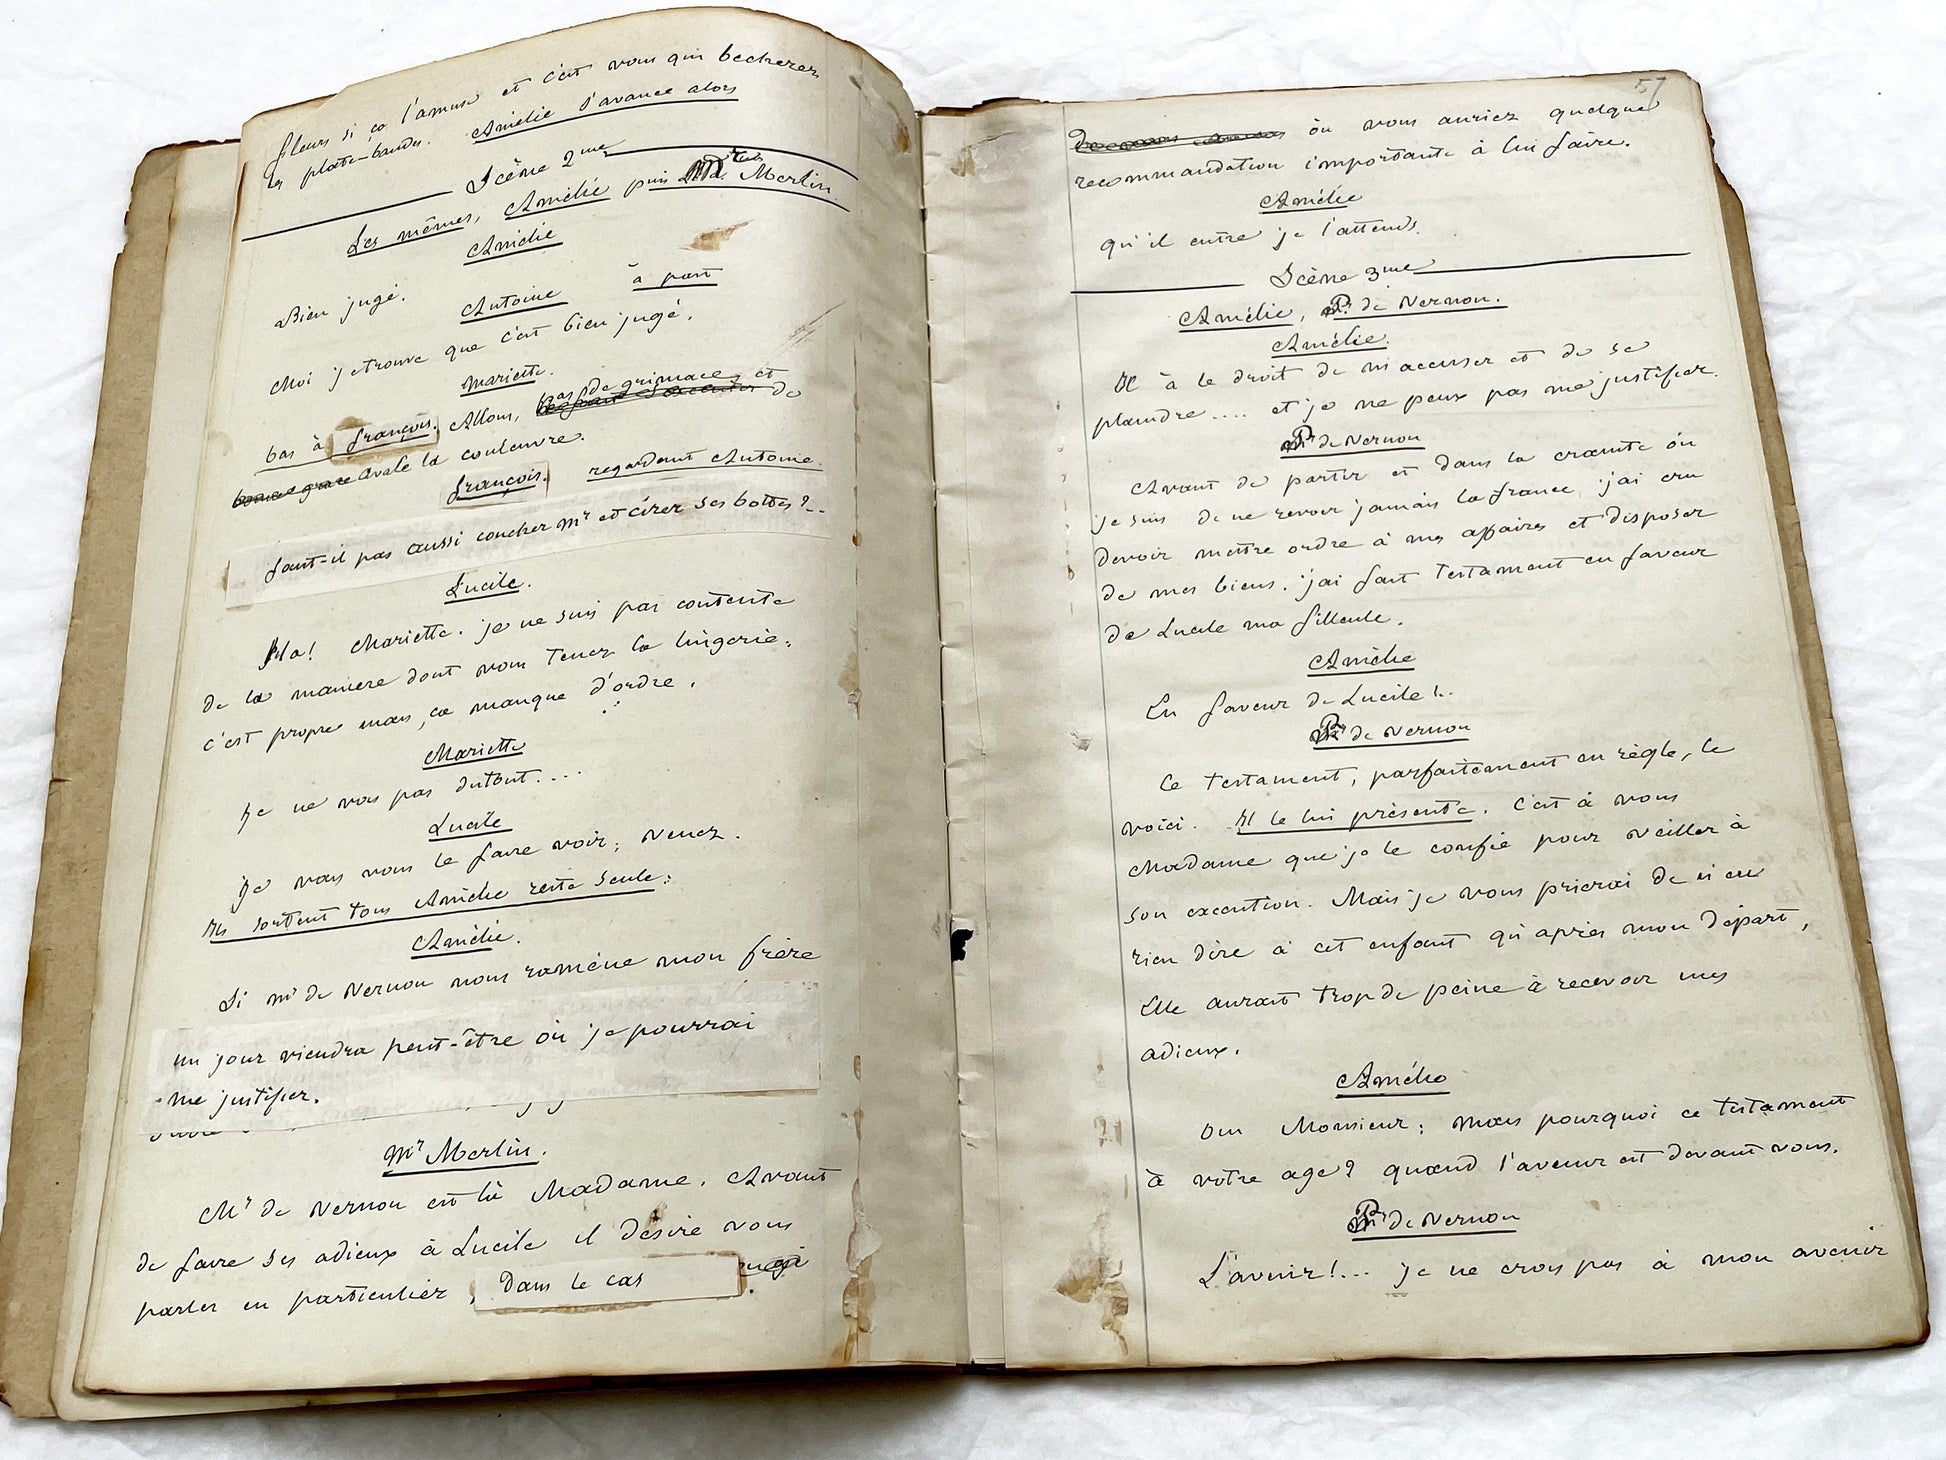 fleurs si ça l'amuse et c'est vous qui becherez
les plate-bandes. Amélie s'avance alors
Scène 2me
Les mêmes, Amélie puis Merlin
Amélie
Bien jugé.
Antoine à part
Moi je trouve que c'est bien jugé.
Mariette.
bas à françois. Allons, pas de grimaces et de
avale la couleuvre.
françois. regardant Antoine.
faut-il pas aussi coucher Mr et cirer ses bottes?..
Lucile.
Ha! Mariette. je ne suis pas contente
de la maniere dont vous tenez la lingerie;
c'est propre mais, ça manque d'ordre.
Mariette
Je ne vois pas dutout....
Lucile
Je vais vous le faire voir; venez.
Ils sortent tous Amélie reste seule;
Amélie.
Si mr de Vernon nous ramène mon frère
un jour viendra peut-être où je pourrai
me justifier.
Mr Merlin.
Mr de Vernon est là Madame. Avant
de faire ses adieux à Lucile il désire vous
parler en particulier, Dans le cas
57
où vous auriez quelque
recommandation importante à lui faire.
Amélie
qu'il entre je l'attends.
Scène 3me
Amélie, de Vernon.
Amélie.
Il à le droit de m'accuser et de se
plaindre.... et je ne peux pas me justifier.
de Vernon
Avant de partir et dans la crainte ôu
je suis de ne revoir jamais la france j'ai cru
devoir mettre ordre à mes affaires et disposer
de mes biens. j'ai fait testament en faveur
de Lucile ma filleule.
Amélie
En faveur de Lucile!..
de Vernon
Ce testament, parfaitement en règle, le
voici. Il le lui présente. C'est à vous
Madame que je le confie pour veiller à
son execution. Mais je vous prierai de n'en
rien dire à cet enfant qu'après mon départ,
Elle aurait trop de peine à recevoir mes
adieux.
Amélie
Oui Monsieur; mais pourquoi ce testament
à votre age? quand l'avenir est devant vous.
de Vernon
L'avenir!... Je ne crois pas à mon avenir